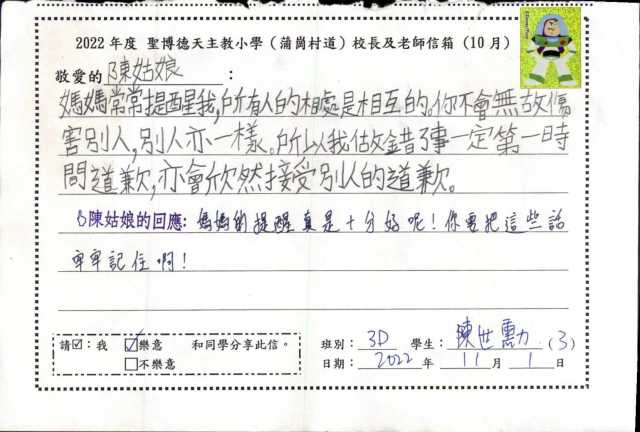 2022 年度 聖博德天主教小學（蒲崗村道）校長及老師信箱（10 月）
敬愛的 陳姑娘 ：
媽媽常常提醒我,所有人的相處是相互的。你不會無故傷
害別人,別人亦一樣。所以我做錯了事一定第一時
間道歉,亦會欣然接受別人的道歉。
陳姑娘的回應: 媽媽的提醒真是十分好呢！你要把這些話
牢牢記住啊！
請☑：我 ☑樂意 和同學分享此信。
□不樂意
班別： 3D 學生： 陳世勳 (3)
日期： 2022 年 11 月 1 日